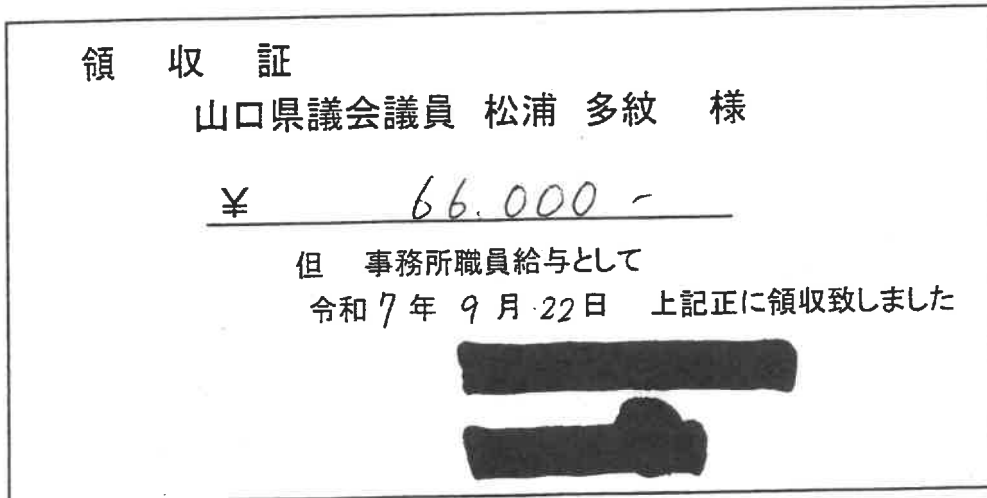 領 収 証
山口県議会議員 松浦 多紋 様
¥ 66.000-
但 事務所職員給与として
令和7年9月22日 上記正に領収致しました